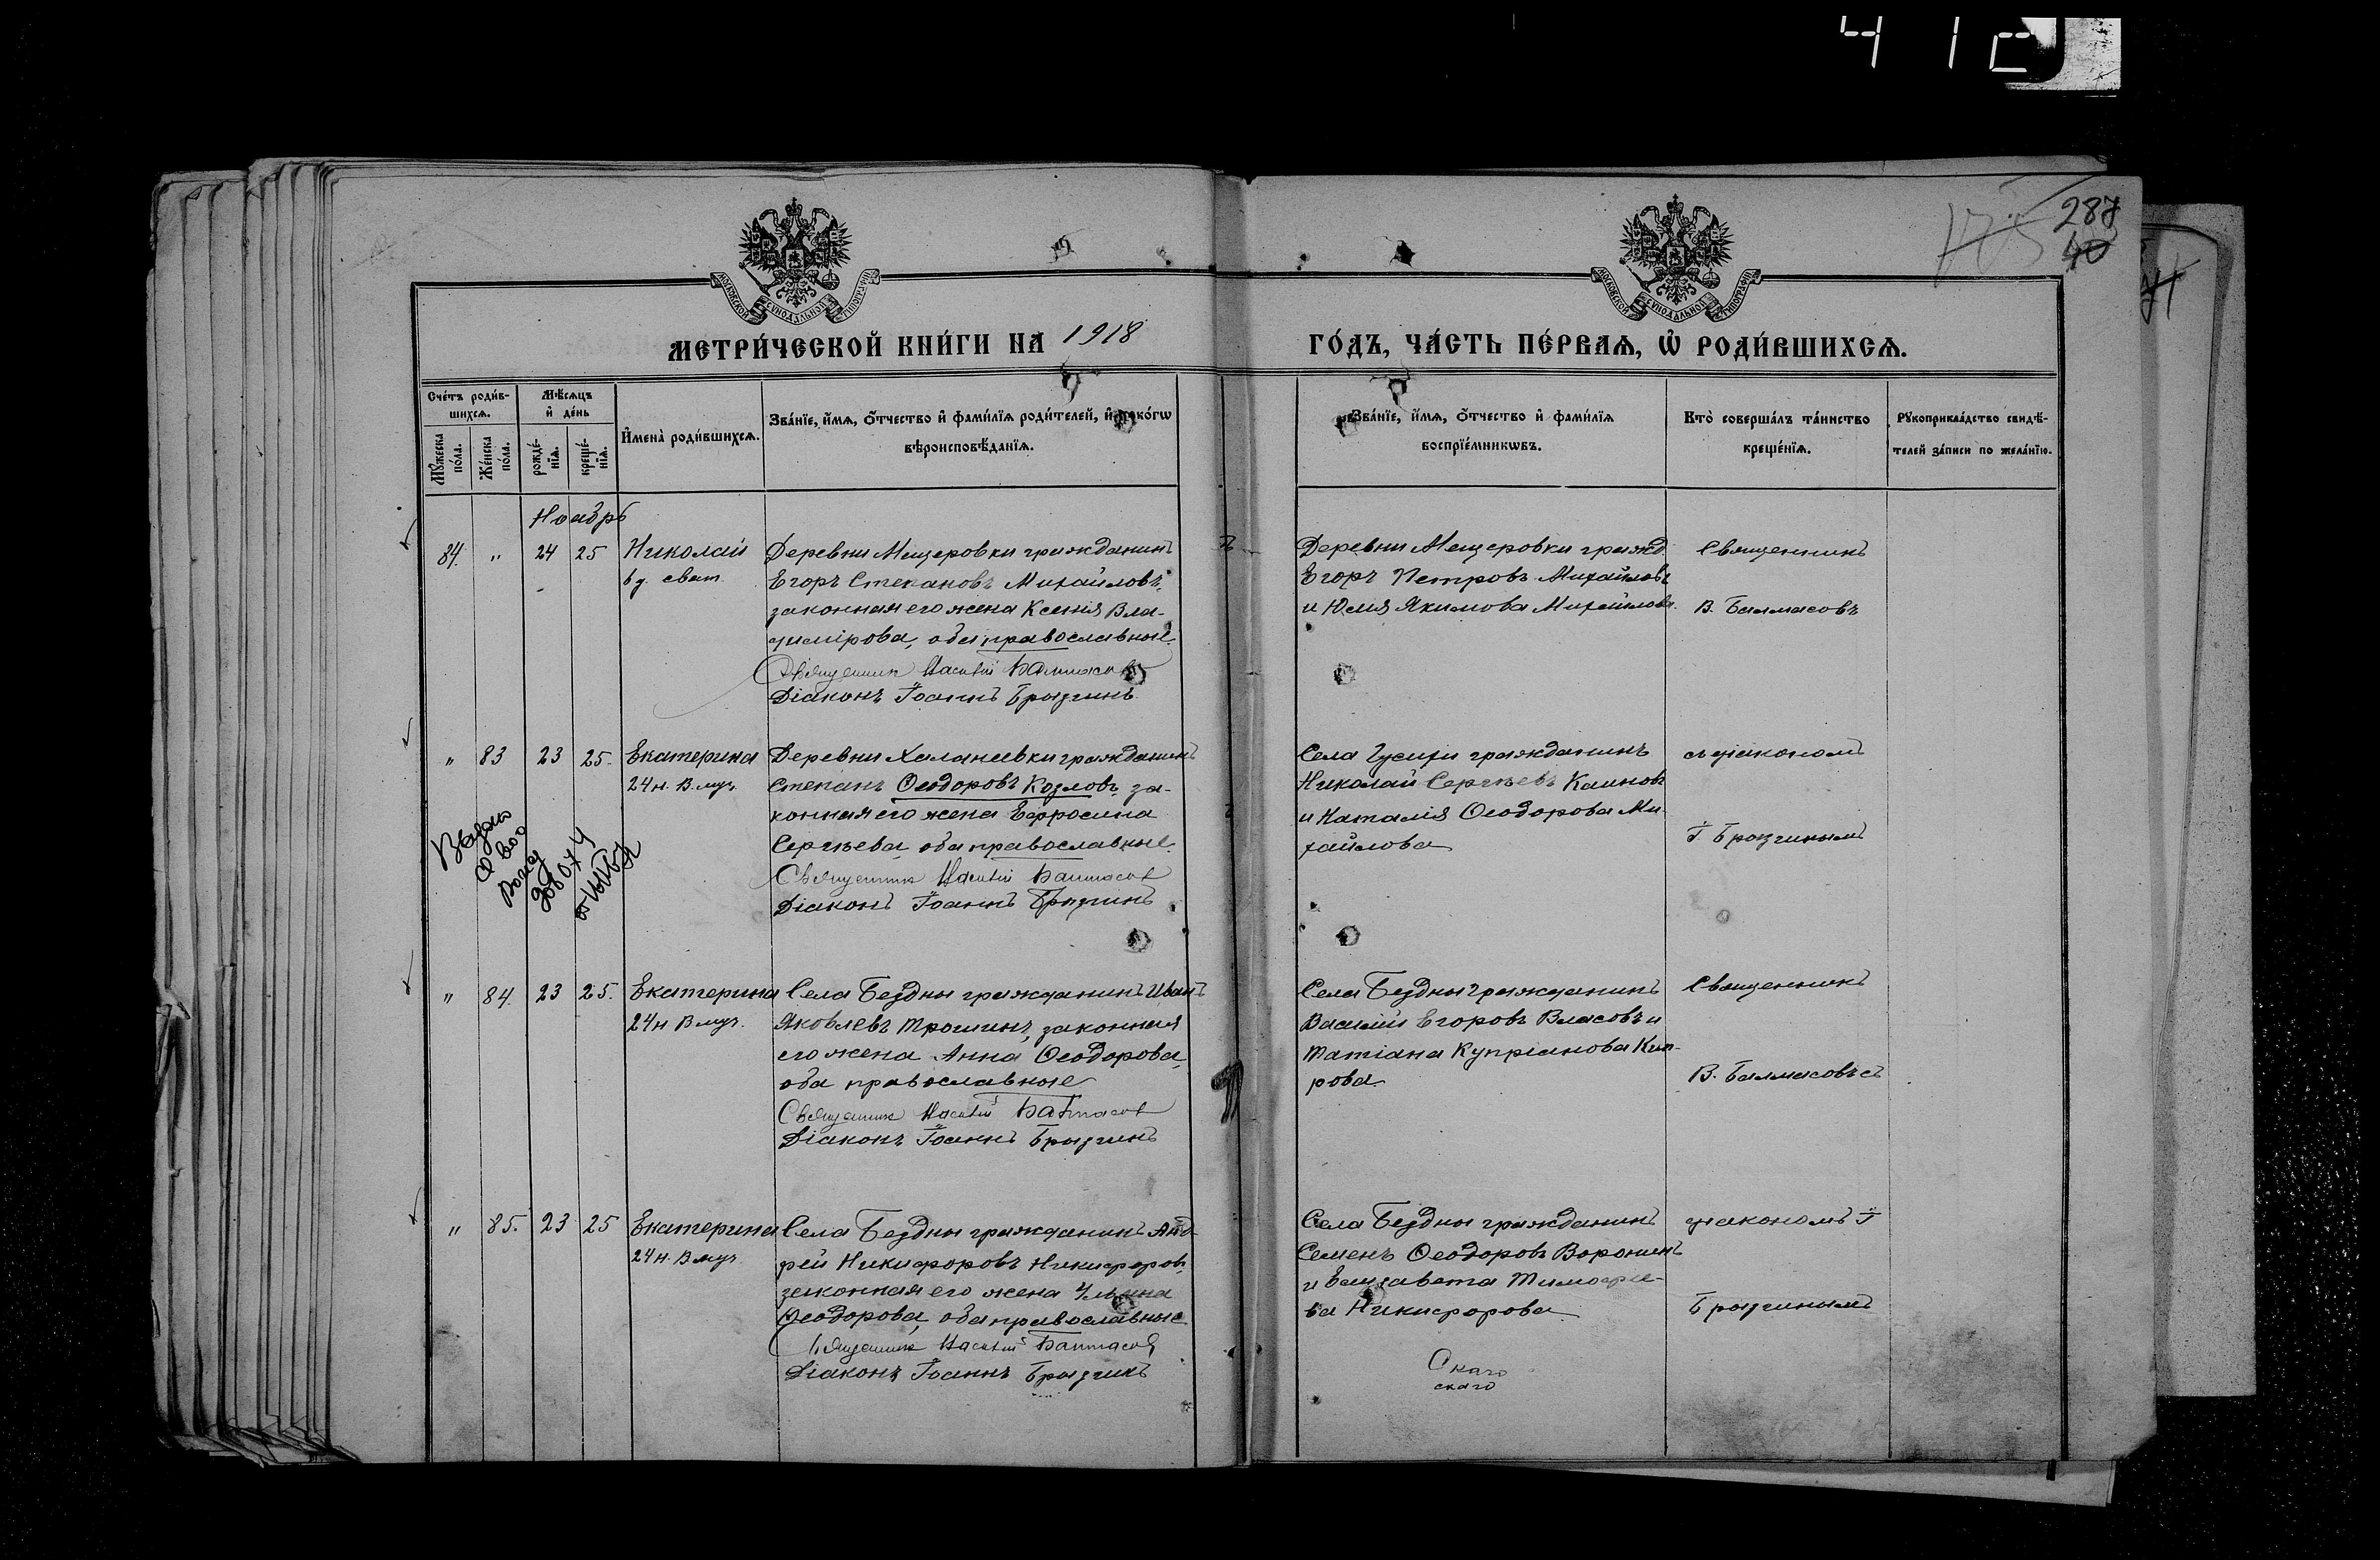 41
287
40
175
МОСКОВСКОЙ СѴНОДАЛЬНОЙ ТИПОГРАФІИ
МОСКОВСКОЙ СѴНОДАЛЬНОЙ ТИПОГРАФІИ
МЕТРИ́ЧЕСКОЙ КНИ́ГИ НА 1918
ГО́ДЪ, ЧА́СТЬ ПЕ́РВАѦ, Ѡ РОДИ́ВШИХСѦ.
Сче́тъ роди́в-
шихсѧ.
Мꙋ́жеска по́ла.
Же́нска по́ла.
Мѣ́сѧцъ
и҆ де́нь
рожде́-
нїѧ.
креще́-
нїѧ.
И҆мена̀ роди́вшихсѧ.
Зва́нїе, и҆́мѧ, ѻ҆́тчество и҆ фами́лїѧ роди́телей, и҆ како́гѡ
вѣроисповѣ́данїѧ.
Зва́нїе, и҆́мѧ, ѻ҆́тчество и҆ фами́лїѧ
воспрїе́мникѡвъ.
Кто̀ соверша́лъ та́инство
креще́нїѧ.
Рꙋкоприкла́дство свидѣ́-
телей за́писи по жела́нїю.
Ноябрь
84. " 24 25 Николай
Деревни Мещеровки гражданинъ
Егоръ Степановъ Михайловъ,
законная его жена Ксенія Вла-
димірова, оба православные.
Священник Василій Балмасов
Діаконъ Іоаннъ Брызгинъ
Деревни Мещеровки гражд.
Егоръ Петровъ Михайловъ
и Юлія Якимова Михайлова.
Священникъ
В. Балмасовъ
" 83 23 25. Екатерина
24 н. В. муч.
Деревни Халанеевки гражданинъ
Степанъ Ѳеодоровъ Козловъ, за-
конная его жена Евфросина
Сергѣева, оба православные.
Священник Василій Балмасов
Діаконъ Іоаннъ Брызгинъ
Села Гусихи гражданинъ
Николай Сергѣевъ
и Наталія Ѳеодорова Ми-
хайлова
съ діакономъ
І. Брызгинымъ
" 84. 23 25. Екатерина
24 н В муч.
Села Бездны гражданинъ Иванъ
Яковлевъ Трошинъ, законная
его жена Анна Ѳеодорова,
оба православные
Священник Василій Балмасов
Діаконъ Іоаннъ Брызгинъ
Села Бездны гражданинъ
Василій Егоровъ Власовъ и
Татіана Купріанова
рова.
Священникъ
В. Балмасовъ съ
" 85. 23 25 Екатерина
24 н. В муч.
Села Бездны гражданинъ Анд-
рей Никифоровъ Никифоровъ,
законная его жена
Ѳеодорова, оба православные
Священник Василій Балмасов
Діаконъ Іоаннъ Брызгинъ
Села Бездны гражданинъ
Семенъ Ѳеодоровъ Воронинъ
и Елизавета Тимофѣе-
ва Никифорова
діакономъ І
Брызгинымъ
скаго